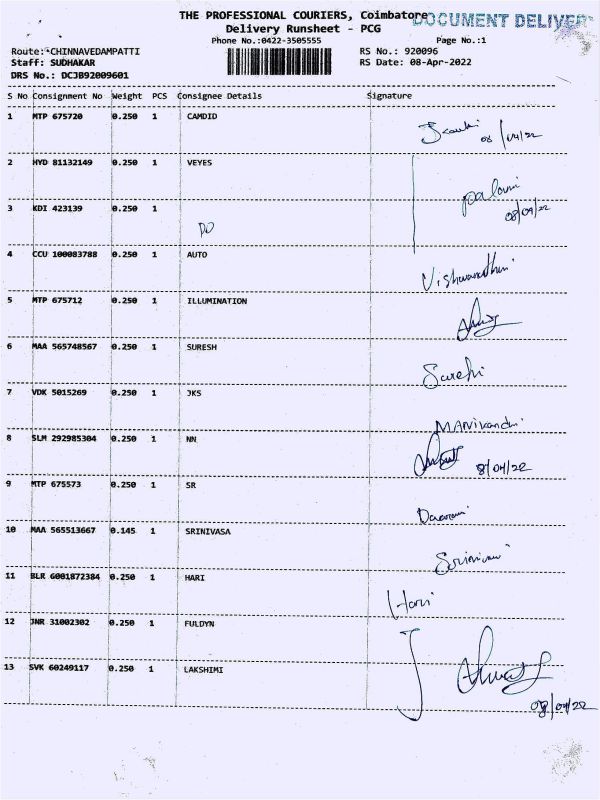 THE PROFESSIONAL COURIERS, Coimbatore
DOCUMENT DELIVER
Delivery Runsheet - PCG
Phone No.:0422-3505555
Page No.:1
Route: CHINNAVEDAMPATTI
RS No.: 920096
Staff: SUDHAKAR
RS Date: 08-Apr-2022
DRS No.: DCJB92009601
S No Consignment No Weight PCS Consignee Details Signature
1 MTP 675720 0.250 1 CAMDID
08/04/22
2 HYD 81132149 0.250 1 VEYES
08/04/22
3 KDI 423139 0.250 1
DO
4 CCU 100083788 0.250 1 AUTO
5 MTP 675712 0.250 1 ILLUMINATION
6 MAA 565748567 0.250 1 SURESH
Sureshi
7 VDK 5015269 0.250 1 JKS
8 SLM 292985304 0.250 1 NN
8/04/22
9 MTP 675573 0.250 1 SR
10 MAA 565513667 0.145 1 SRINIVASA
11 BLR 6001872384 0.250 1 HARI
Hari
12 JNR 31002302 0.250 1 FULDYN
13 SVK 60249117 0.250 1 LAKSHIMI
08/04/22